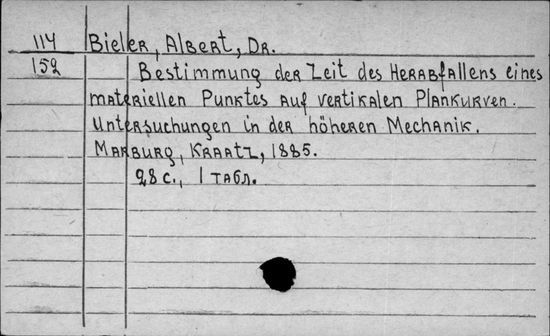 114 Bieler, Albert, Dr.
152 Bestimmung der Zeit des Herabfallens eines
materiellen Punktes auf vertikalen Plankurven.
Untersuchungen in der höheren Mechanik.
Marburg, Kraatz, 1885.
28 с., 1 табл.